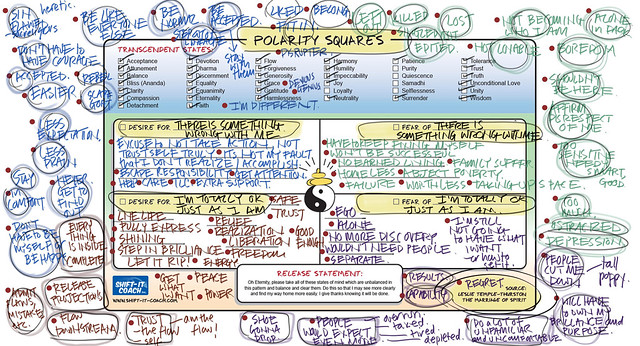 heretic.
BE LIKE
EVERYONE
ELSE
BE
NORMAL
BE
ACCEPTED.
LIKED
BELONG
FIT IN
KILLED
LOST
NOT BECOMING
WHO I AM
ALONE
IN PACK
DON'T HAVE TO
HAVE COURAGE
ACCEPTED.
EASIER.
REBEL
SCAPE
GOAT
STAY
with
them
DISRUPTER
POLARITY SQUARES
NOT LOVABLE
BOREDOM
SHOULDN'T
BE HERE.
TRANSCENDENT STATES:
Acceptance
Atonement
Balance
Bliss (Ananda)
Clarity
Compassion
Detachment
Devotion
Dharma
Discernment
Equality
Equanimity
Eternality
Faith
Flow
Forgiveness
Generosity
Grace
Gratitude
Harmlessness
Harmony
Humility
Impeccability
Joy
Loyalty
Neutrality
Patience
Purity
Quiescence
Samadhi
Selflessness
Surrender
Tolerance
Trust
Truth
Unconditional Love
Unity
Wisdom
VENUS
I'M DIFFERENT.
LESS
EXPECTATION
LESS
DRAIN
STAY
IN
COMFORT
NEVER
GET TO
FIND
OUT
AFFIRM
DISRESPECT
OF ME
TOO
SENSITIVE
NEEDY
SMART,
GOOD
TOO
MUCH
OSTRACIZED
DEPRESSION
DESIRE FOR THERE IS SOMETHING
WRONG WITH ME
EXCUSE... NOT TAKE ACTION, NOT
TRUST SELF TRULY. IT'S NOT MY FAULT
THAT I DON'T REALIZE/ACCOMPLISH.
ESCAPE RESPONSIBILITY GET ATTENTION.
HELP CARE EXTRA SUPPORT.
FEAR OF THERE IS
SOMETHING WRONG WITH ME
HAVE TO KEEP FIXING MYSELF
WON'T BE SUCCESSFUL.
NO EARNED WINNING FAMILY SUFFER
HOMELESS ABJECT POVERTY.
FAILURE WORTHLESS TAKING UP SPACE.
DESIRE FOR I'M TOTALLY OK
JUST AS I AM
SAFE
LIVE LIFE
RELIEF
TRUST
FULLY EXPRESS
REALIZATION
GOOD
ENOUGH
SHINING
LIBERATION
STEP IN BRILLIANCE
FREEDOM
LET IT RIP!
ENERGY
FEAR OF I'M TOTALLY OK
JUST AS I AM.
EGO
ALONE
NO MORE DISCOVERY
WOULDN'T NEED PEOPLE
SEPARATE
I'M STILL
NOT GOING
TO HAVE WHAT
I WANT
DON'T
HAVE TO BE
MYSELF OR
BE HAPPY
EVERY
THING IS
INSIDE
COMPLETE
PEOPLE
CUT ME
DOWN
tall
poppy.
SHIFT-IT
COACH
WWW.SHIFT-IT-COACH.COM
GET
WHAT I
WANT
PEACE
POWER
RELEASE STATEMENT:
Oh Eternity, please take all of these states of mind which are unbalanced in
this pattern and balance and clear them. Do this so that I may see more clearly
and find my way home more easily. I give thanks knowing it will be done.
RESULTS
CAPABILITY
REGRET.
SOURCE:
LESLIE TEMPLE-THURSTON
THE MARRIAGE OF SPIRIT
ADMIT
FLAWS,
MISTAKES,
ETC.
RELEASE
PROTECTIONS
FLOW
DOWNSTREAM
TRUST
the
self
am the
flow!
SHOE
GONNA
DROP
PEOPLE
WOULD EXPECT
EVEN MORE.
overrun,
taxed.
tired,
depleted.
DO A LOT OF
UNFAMILIAR
and UNCOMFORTABLE
WILL HAVE
TO OWN MY
BRILLIANCE AND
PURPOSE.